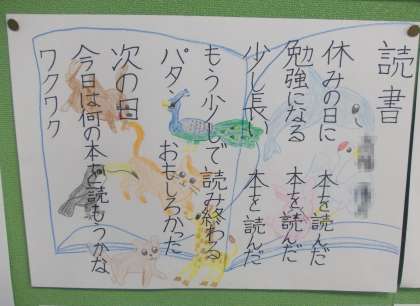 読書
休みの日に 本を読んだ
勉強になる 本を読んだ
少し長い 本を読んだ
もう少しで読み終わる
パタン おもしろかった
次の日
今日は何の本を読もうかな
ワクワク